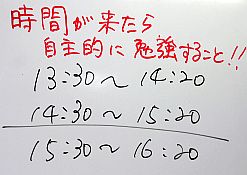 時間が来たら
自主的に勉強すること!!
13:30〜14:20
14:30〜15:20
15:30〜16:20